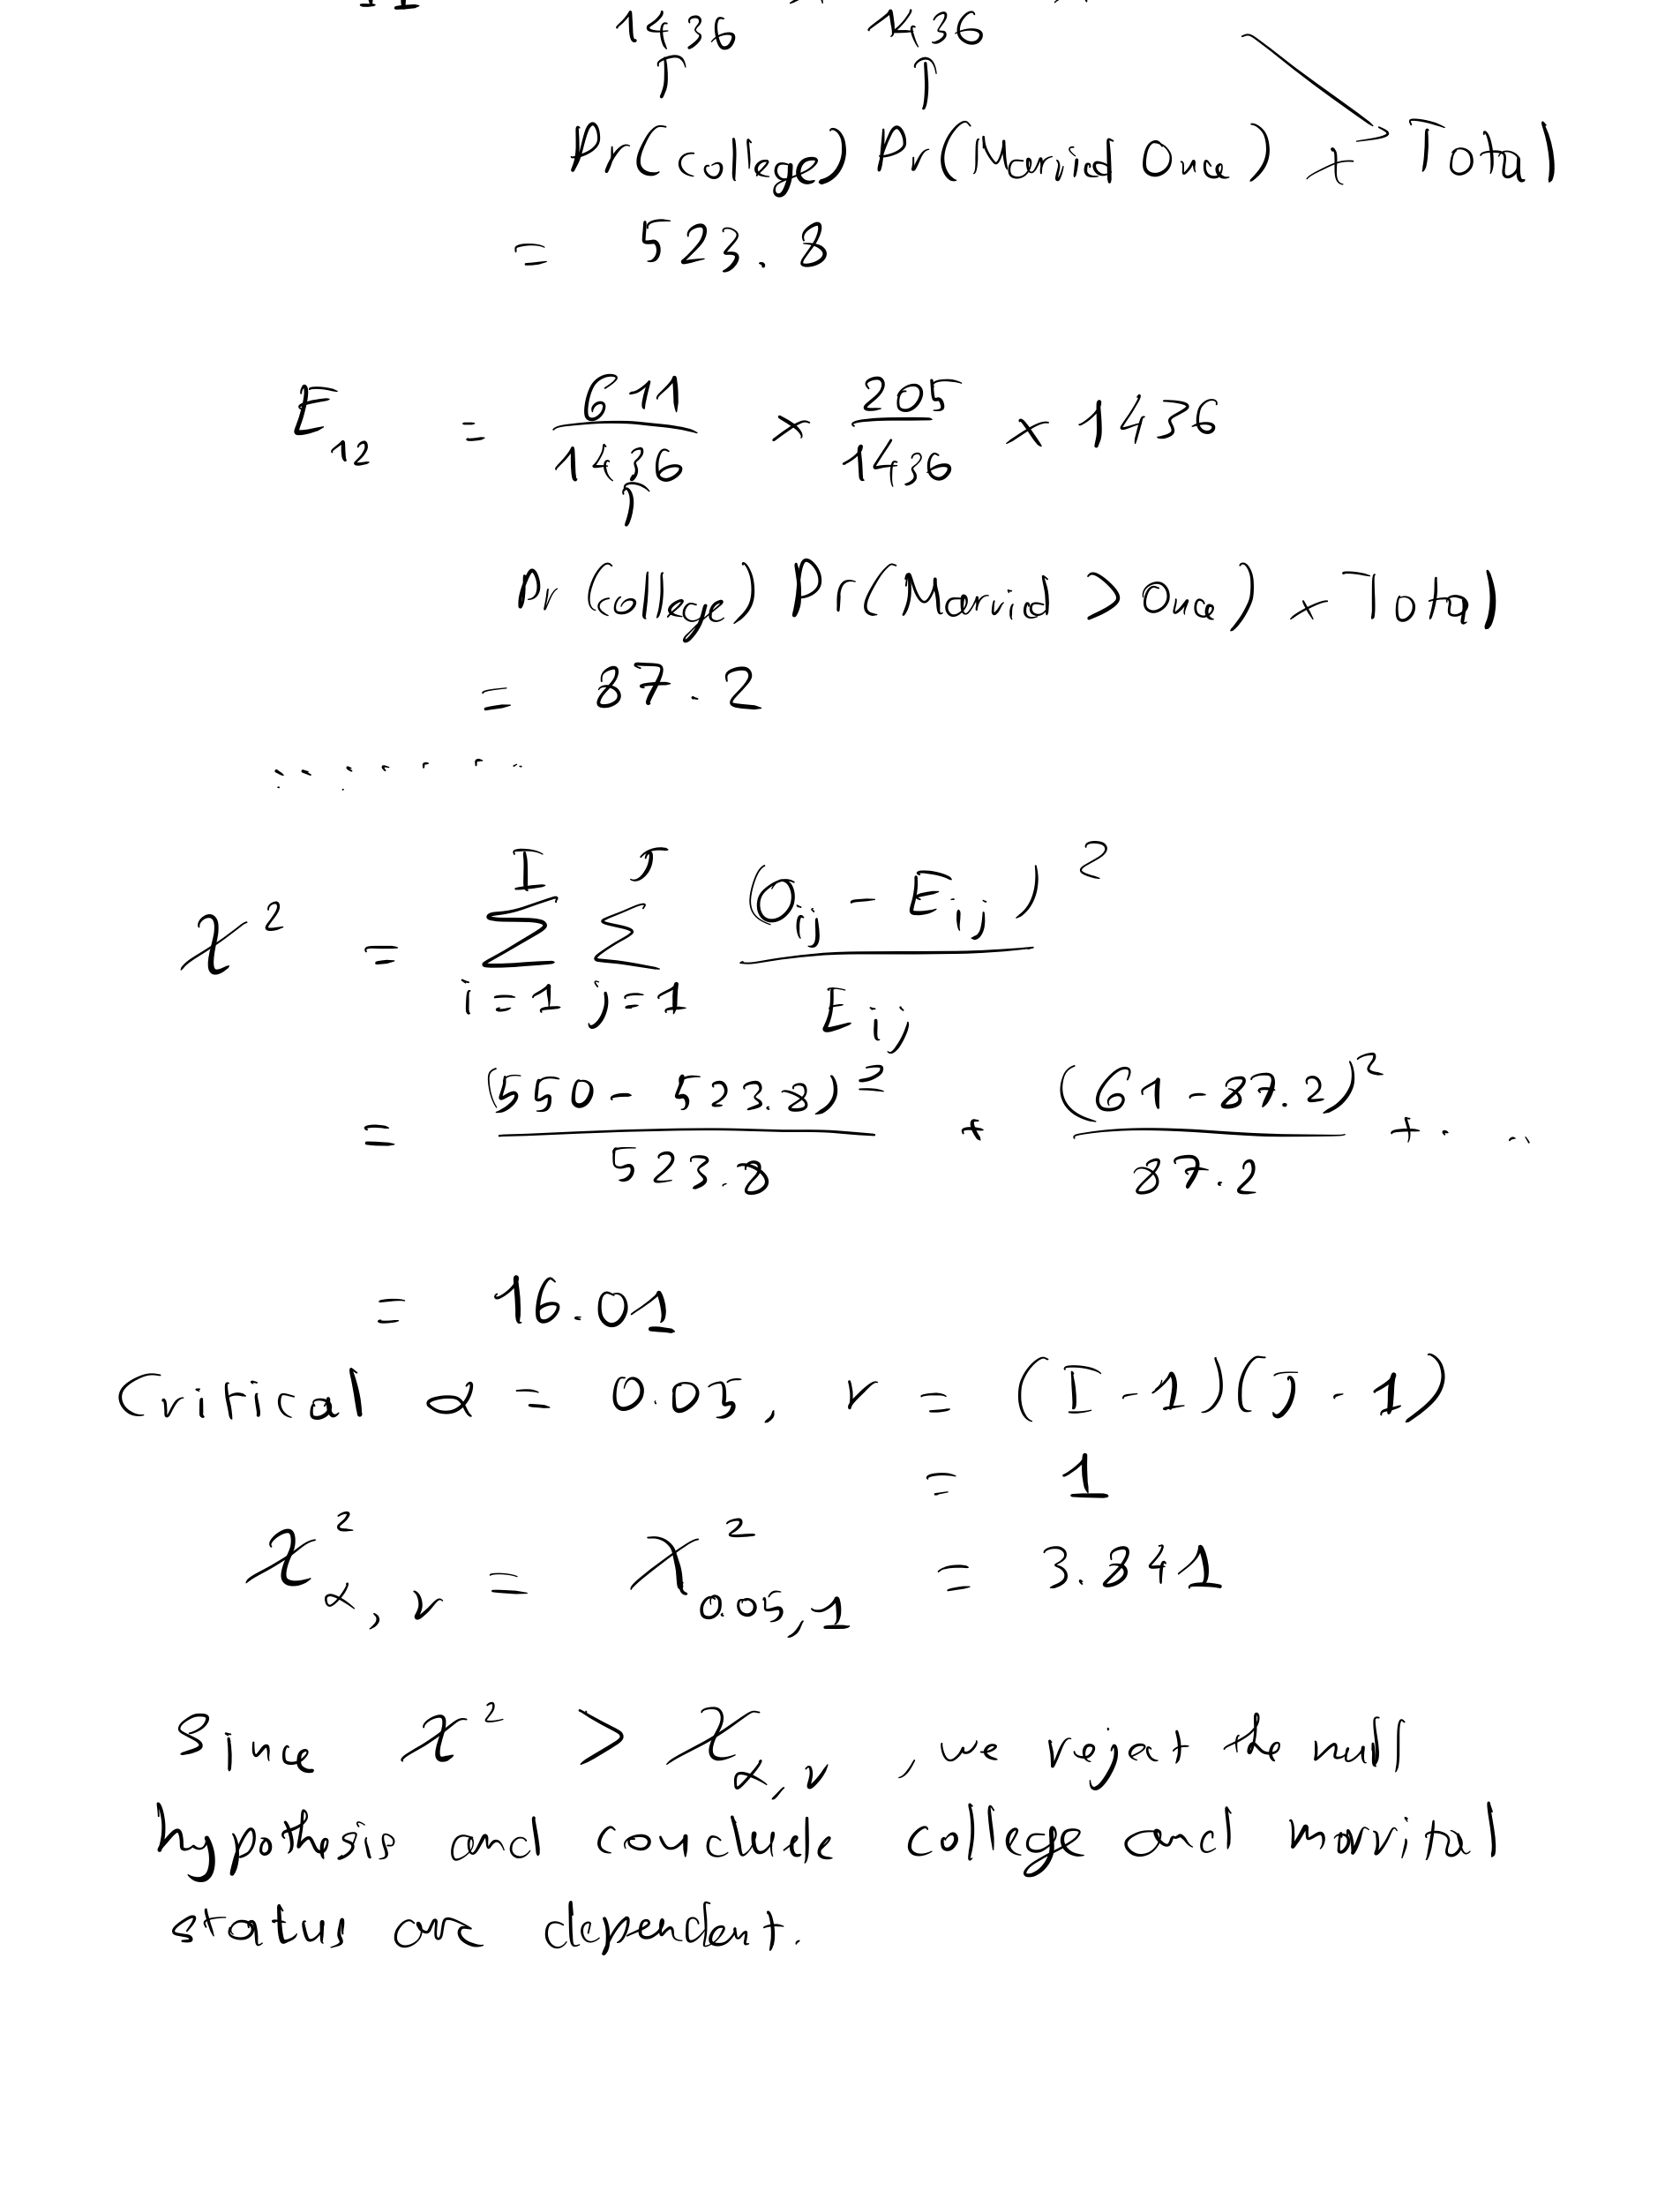 11
1436 × 1436 ×
↑ ↑
Pr(college) Pr(Married Once) × Total
= 523.8
E₁₂ = 611/1436 × 205/1436 × 1436
↑
Pr(college) Pr(Married > Once) × Total
= 87.2
. . . . . . .
χ² = Σ_{i=1}^{I} Σ_{j=1}^{J} (O_ij - E_ij)² / E_ij
= (550 - 523.8)² / 523.8 + (61 - 87.2)² / 87.2 + . . .
= 16.01
Critical α = 0.05, ν = (I-1)(J-1)
= 1
χ²_{α,ν} = χ²_{0.05,1} = 3.841
Since χ² > χ_{α,ν}, we reject the null
hypothesis and conclude college and marrital
status are dependent.